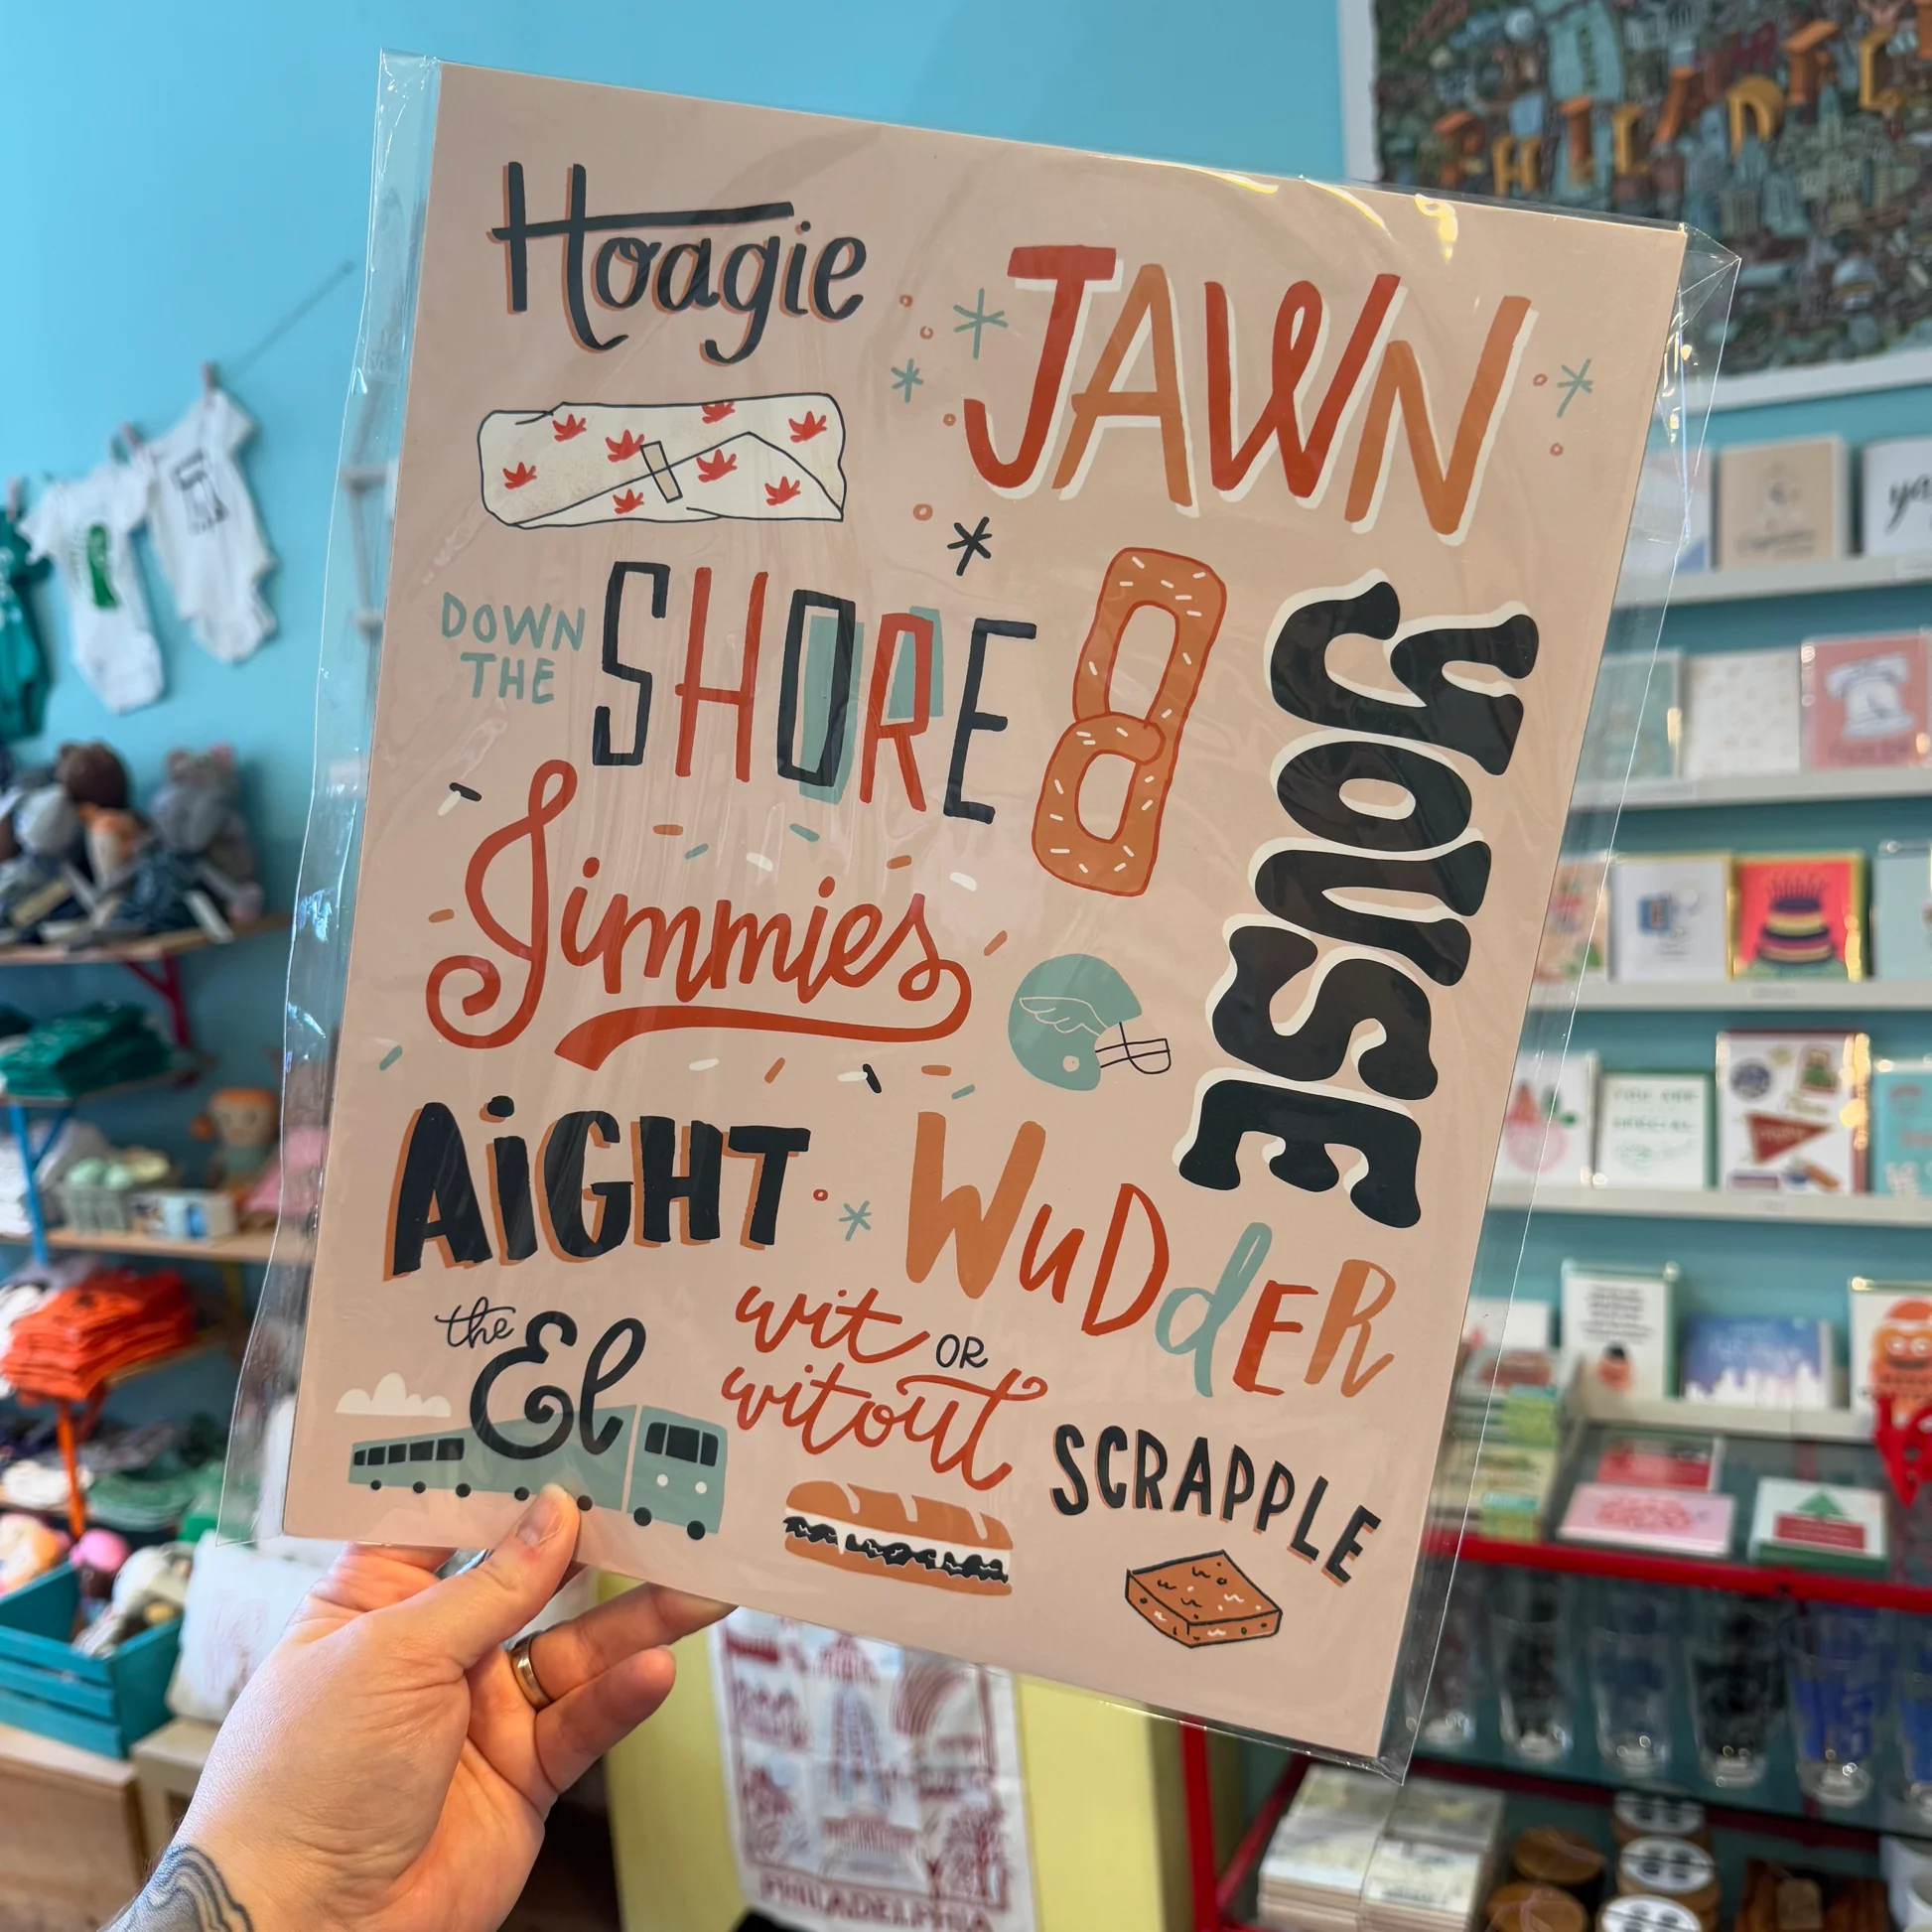 Hoagie
JAWN
DOWN
THE
SHORE
YOUSE
Jimmies
AiGHT
WuDdER
the
El
wit OR
witout
SCRAPPLE
PHILADEL
PHILADELPHIA
YOU ARE
SPECIAL